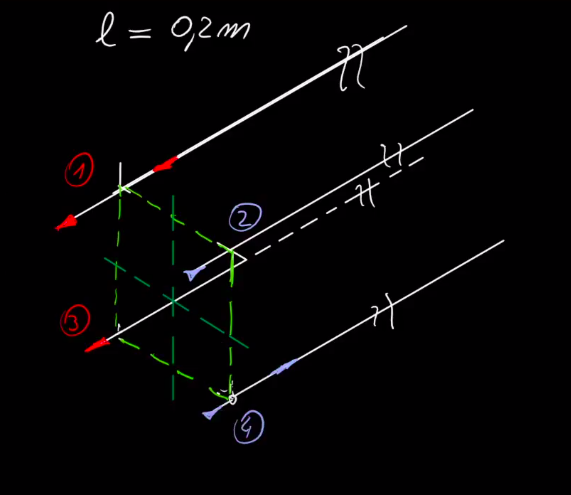 l = 0,2m
1
2
3
4